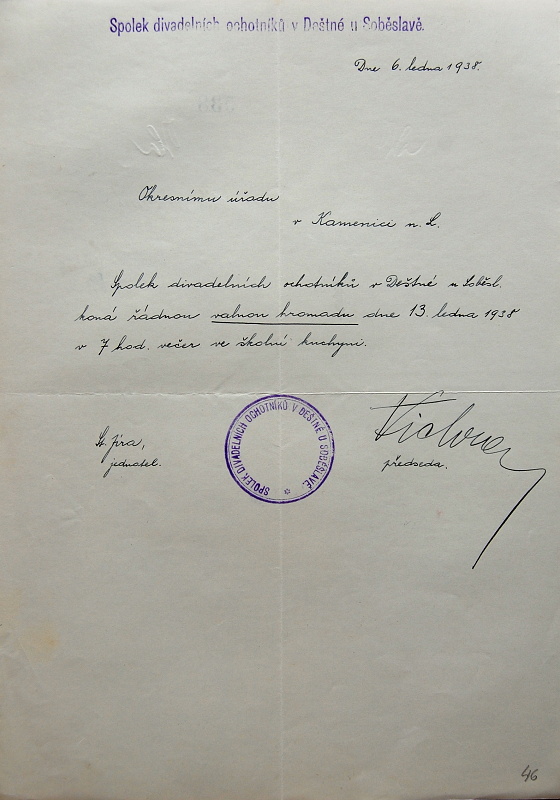 Spolek divadelních ochotníků v Deštné u Soběslavě.
Dne 6. ledna 1938.
Okresnímu úřadu
v Kamenici n. L.
Spolek divadelních ochotníků v Deštné u Soběsl.
koná řádnou valnou hromadu dne 13. ledna 1938
v 7 hod. večer ve školní kuchyni.
St. Jíra,
jednatel.
SPOLEK DIVADELNÍCH OCHOTNÍKŮ V DEŠTNÉ U SOBĚSLAVĚ.
předseda.
46